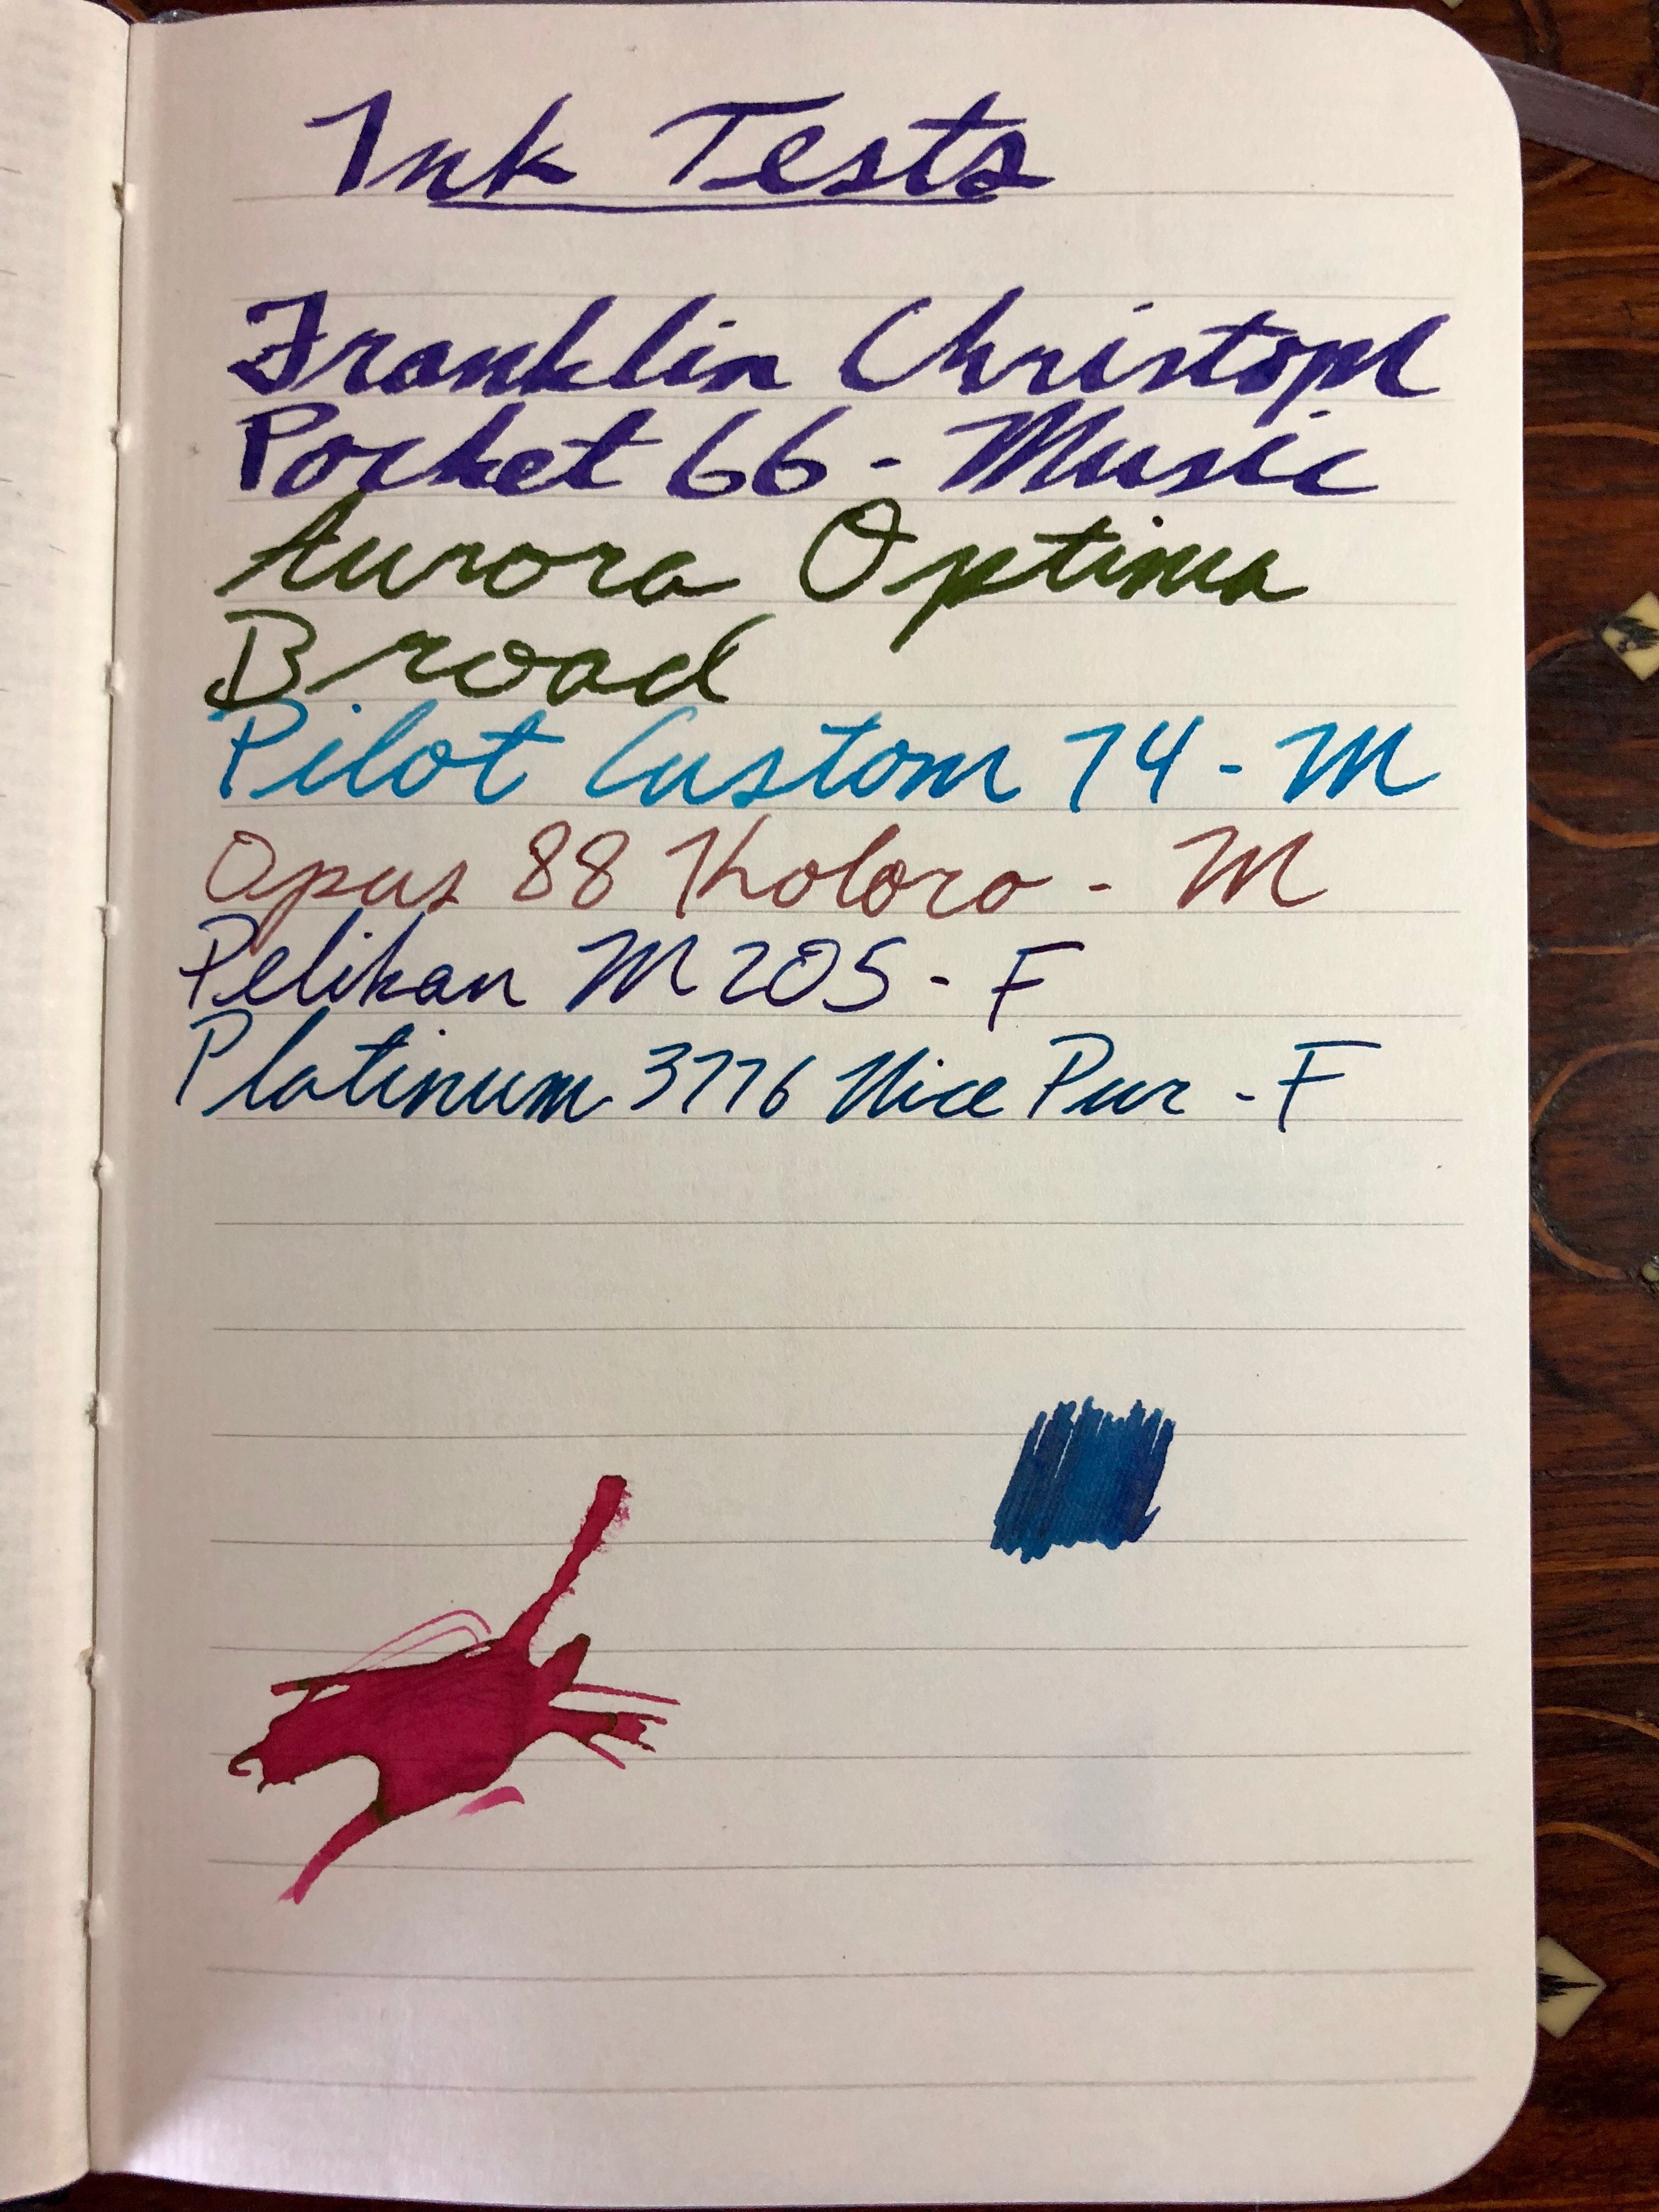 Ink Tests
Franklin Christoph
Pocket 66 - Music
Aurora Optima
Broad
Pilot Custom 74 - M
Opus 88 Koloro - M
Pelikan M205 - F
Platinum 3776 Nice Pur - F